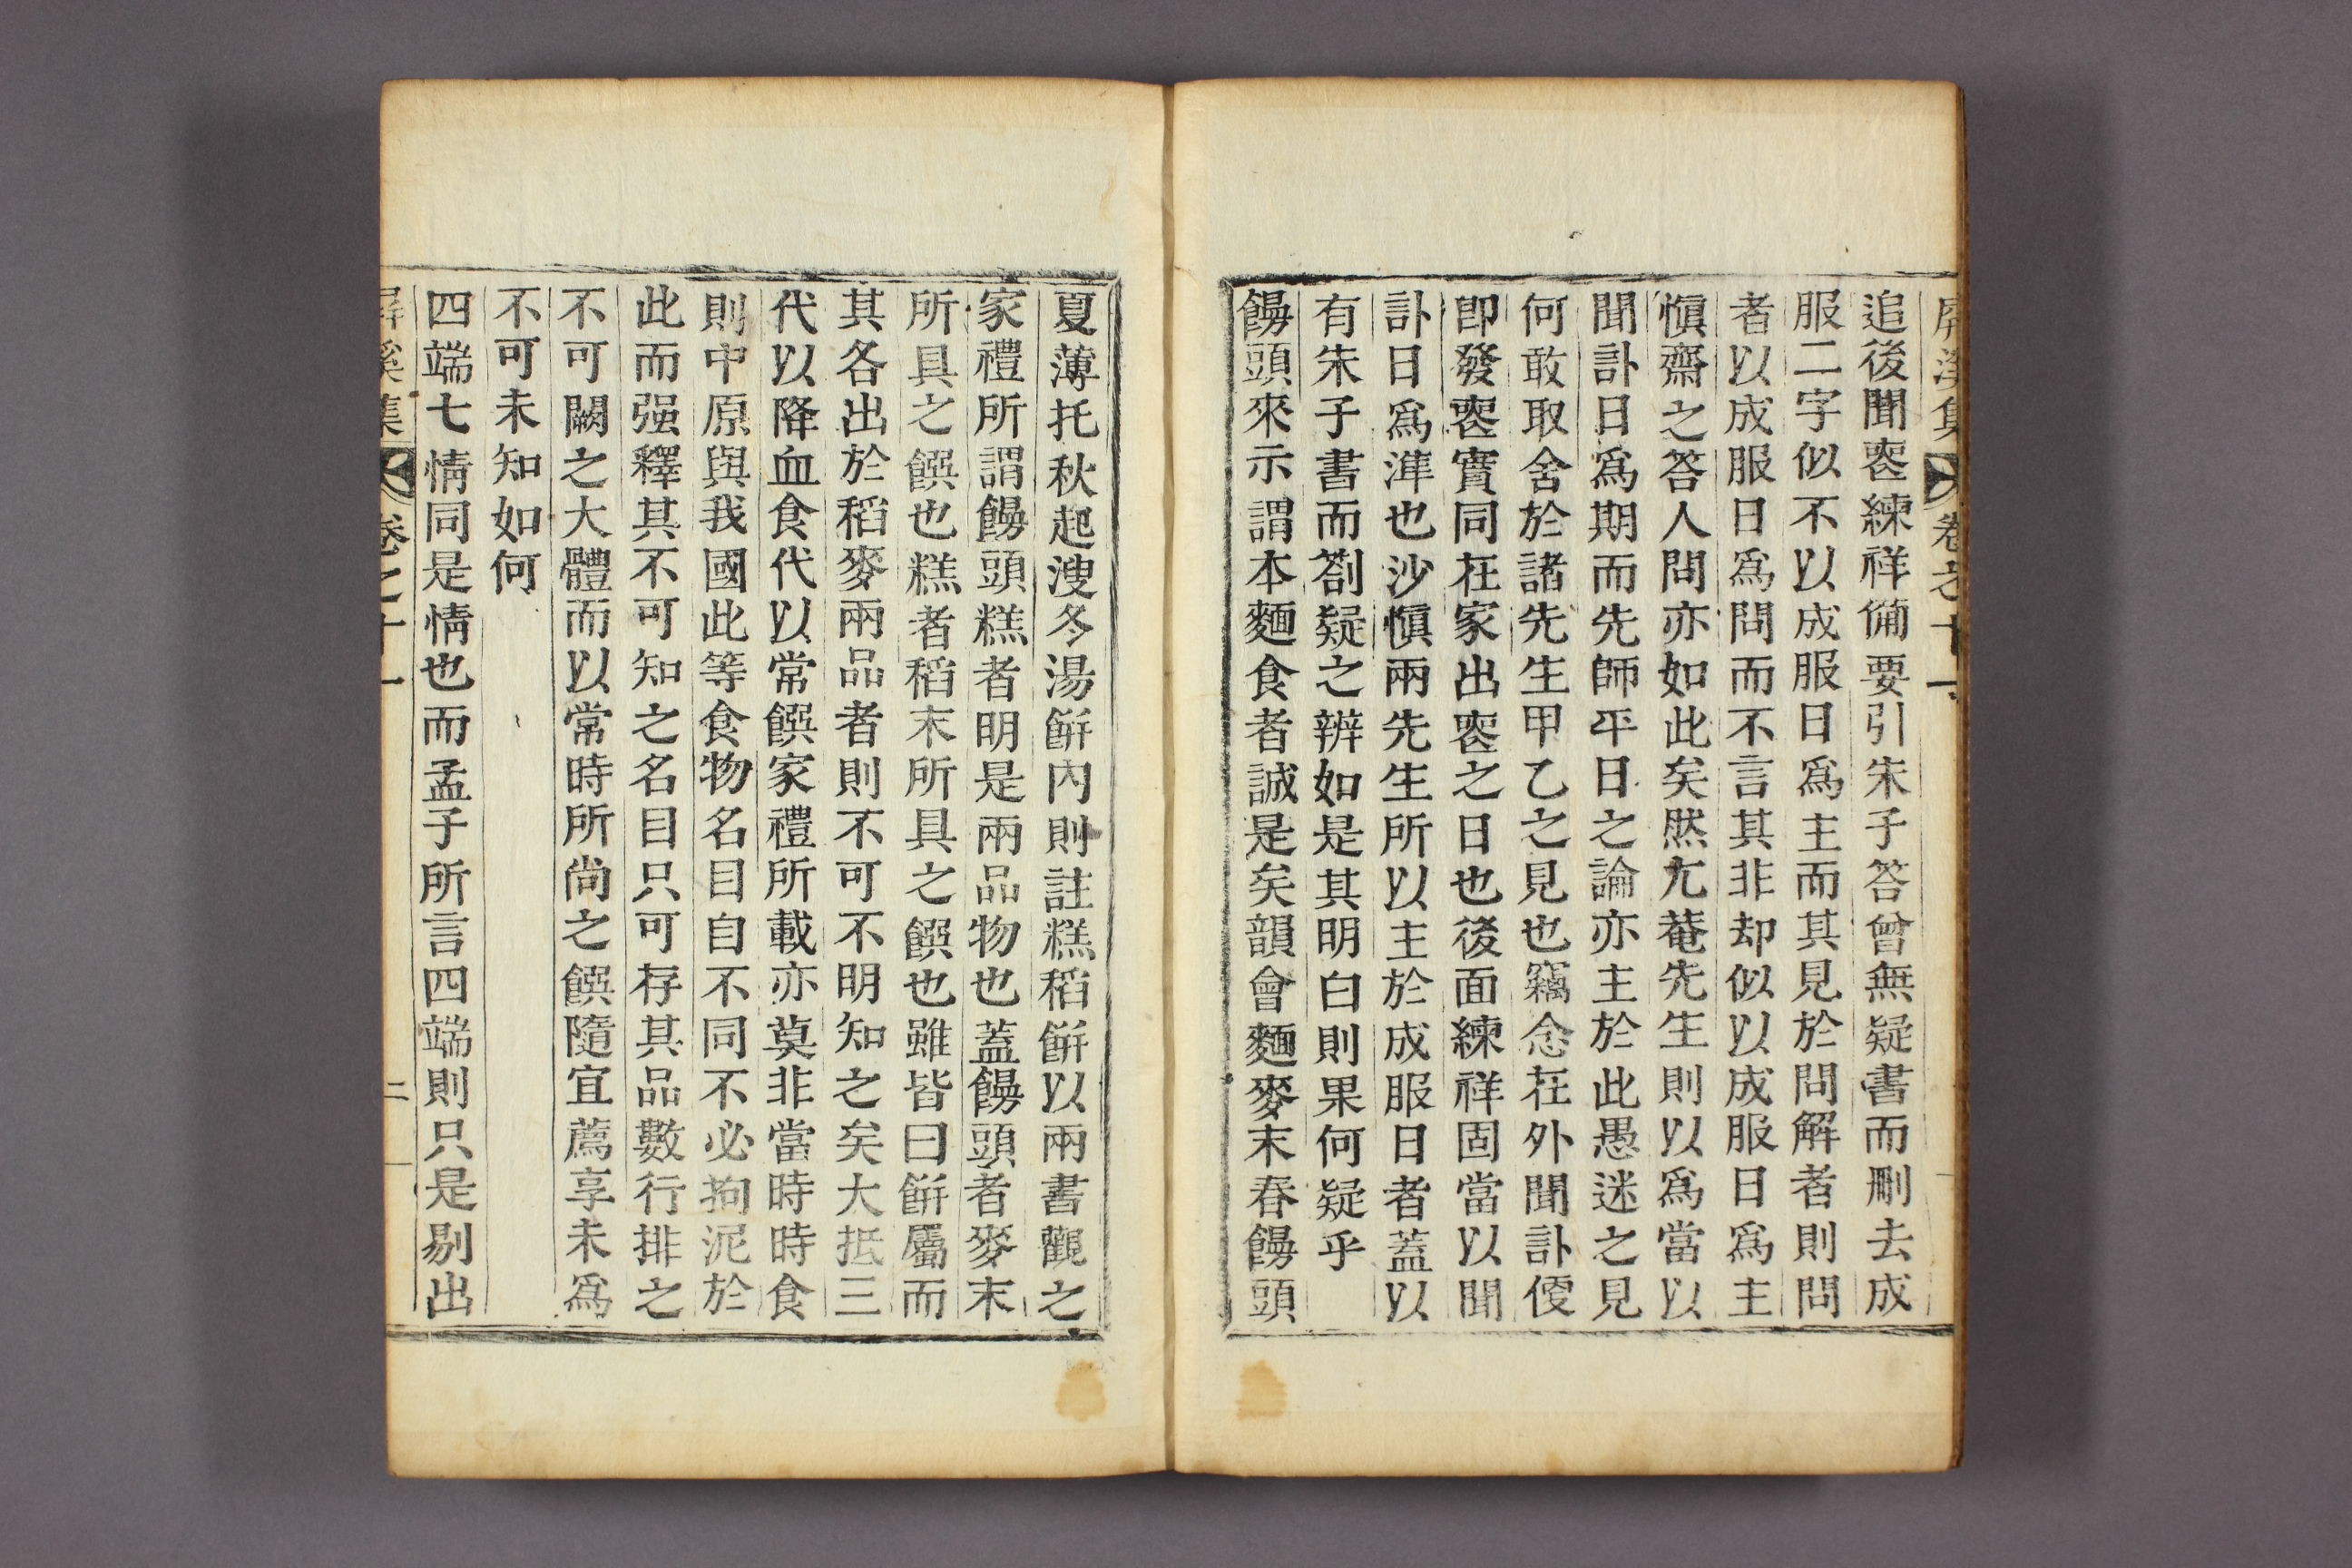 屛溪集 卷之十一
追後聞喪練祥備要引朱子答曾無疑書而刪去成
服二字似不以成服日爲主而其見於問解者則問
者以成服日爲問而不言其非却似以成服日爲主
愼齋之答人問亦如此矣然尤菴先生則以爲當以
聞訃日爲期而先師平日之論亦主於此愚迷之見
何敢取舍於諸先生甲乙之見也竊念在外聞訃便
卽發喪實同在家出喪之日也後面練祥固當以聞
訃日爲準也沙愼兩先生所以主於成服日者蓋以
有朱子書而劄疑之辨如是其明白則果何疑乎
饅頭來示謂本麵食者誠是矣韻會麵麥末春饅頭
夏薄托秋起溲冬湯餠內則註糕稻餠以兩書觀之
家禮所謂饅頭糕者明是兩品物也蓋饅頭者麥末
所具之饌也糕者稻末所具之饌也雖皆曰餠屬而
其各出於稻麥兩品者則不可不明知之矣大抵三
代以降血食代以常饌家禮所載亦莫非當時時食
則中原與我國此等食物名目自不同不必拘泥於
此而强釋其不可知之名目只可存其品數行排之
不可闕之大體而以常時所尙之饌隨宜薦享未爲
不可未知如何
四端七情同是情也而孟子所言四端則只是剔出
屛溪集 卷之十一 二